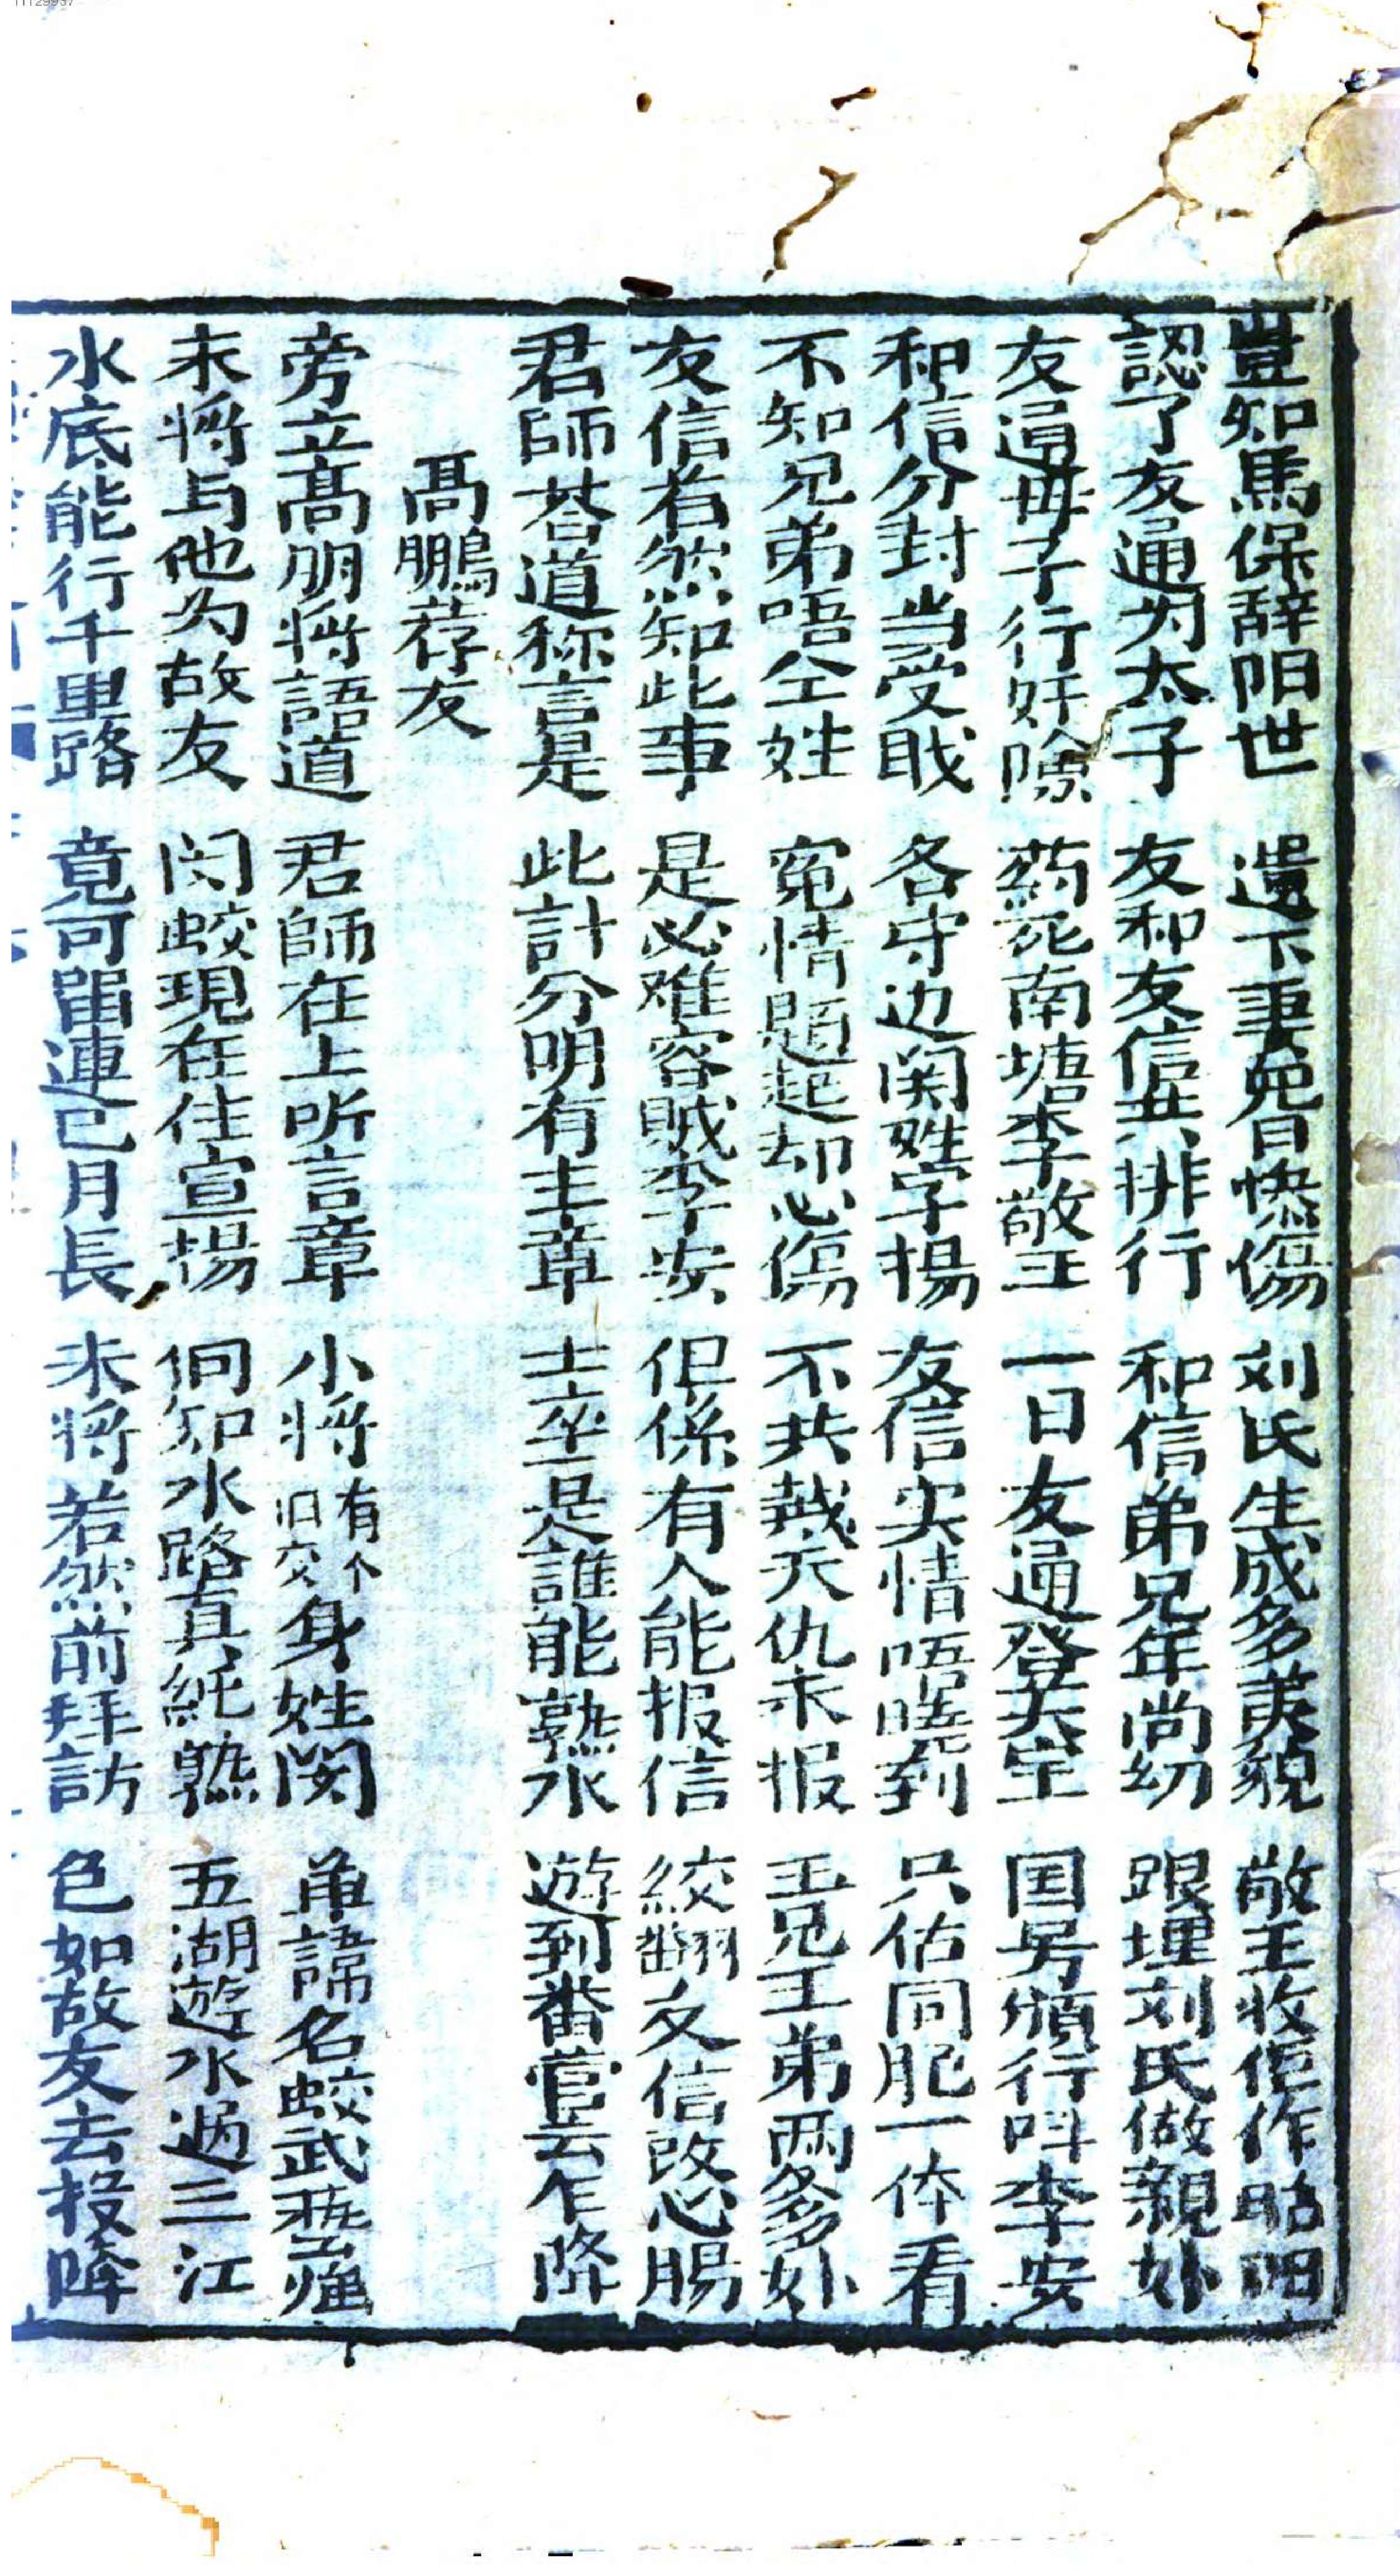 豈知馬保辞阳世 遺下妻兒日慘傷 刘氏生成多美貌 敬王收佢作昭阳
認了友通为太子 友和友信共排行 和信弟兄年尚幼 跟埋刘氏做親娘
友通毋子行奸險 药死南塘李敬王 一日友通登大宝 国号頒行呌李安
和信分封当受戝 各守边関姓字揚 友信实情唔曉到 只估同胞一体看
不知兄弟唔仝姓 寃情題起却心傷 不共戴天仇未报 王兄王弟两多
友信若然知此事 是必难容賊李安 但係有人能报信 友信改心腸
君師荅道称言是 此計分明有主章 士卒是誰能熟水 遊到番营去乍降
高鵬荐友
旁立高朋将語道 君師在上听言章 小将有个旧交身姓関 諱名蛟武藝强
未将与他为故友 関蛟現在住宣揚 佢知水路真純熟 五湖遊水過三江
水底能行千里路 竟可連巴月長 未将若然前拜訪 包如故友去投降